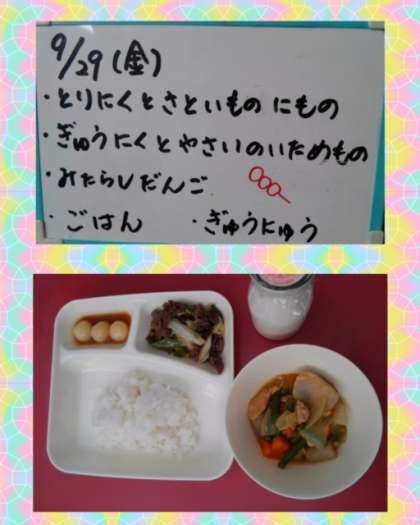 9/29(金)
・とりにくとさといものにもの
・ぎゅうにくとやさいのいためもの
・みたらしだんご
・ごはん ・ぎゅうにゅう